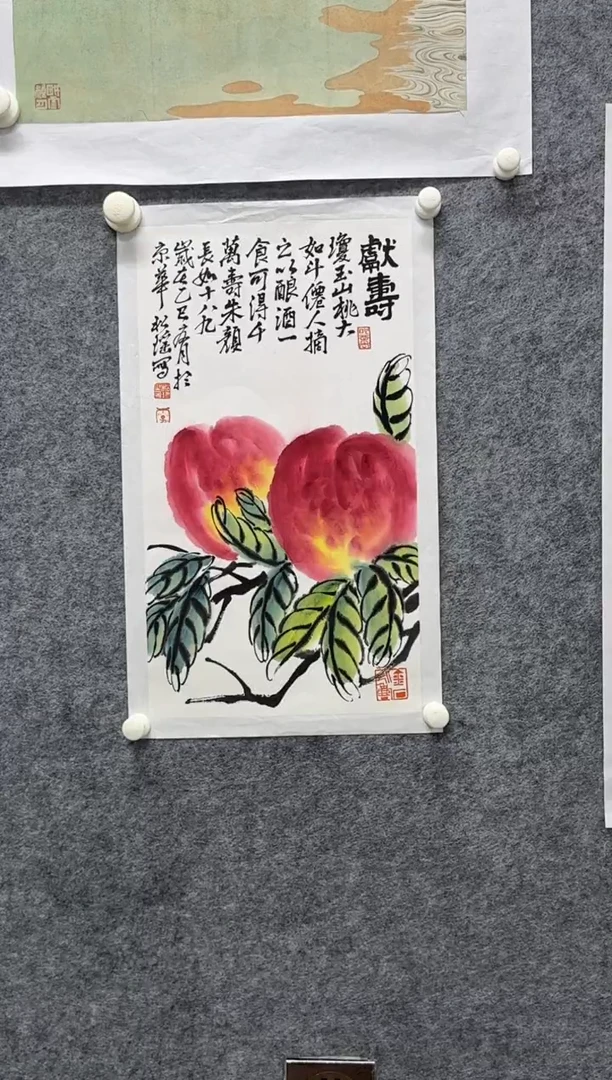 獻壽
瓊玉山桃大
如斗僊人摘
之以酿酒一
食可得千
萬壽朱顏
長如十八九
歲在乙巳
月於
京華
寫